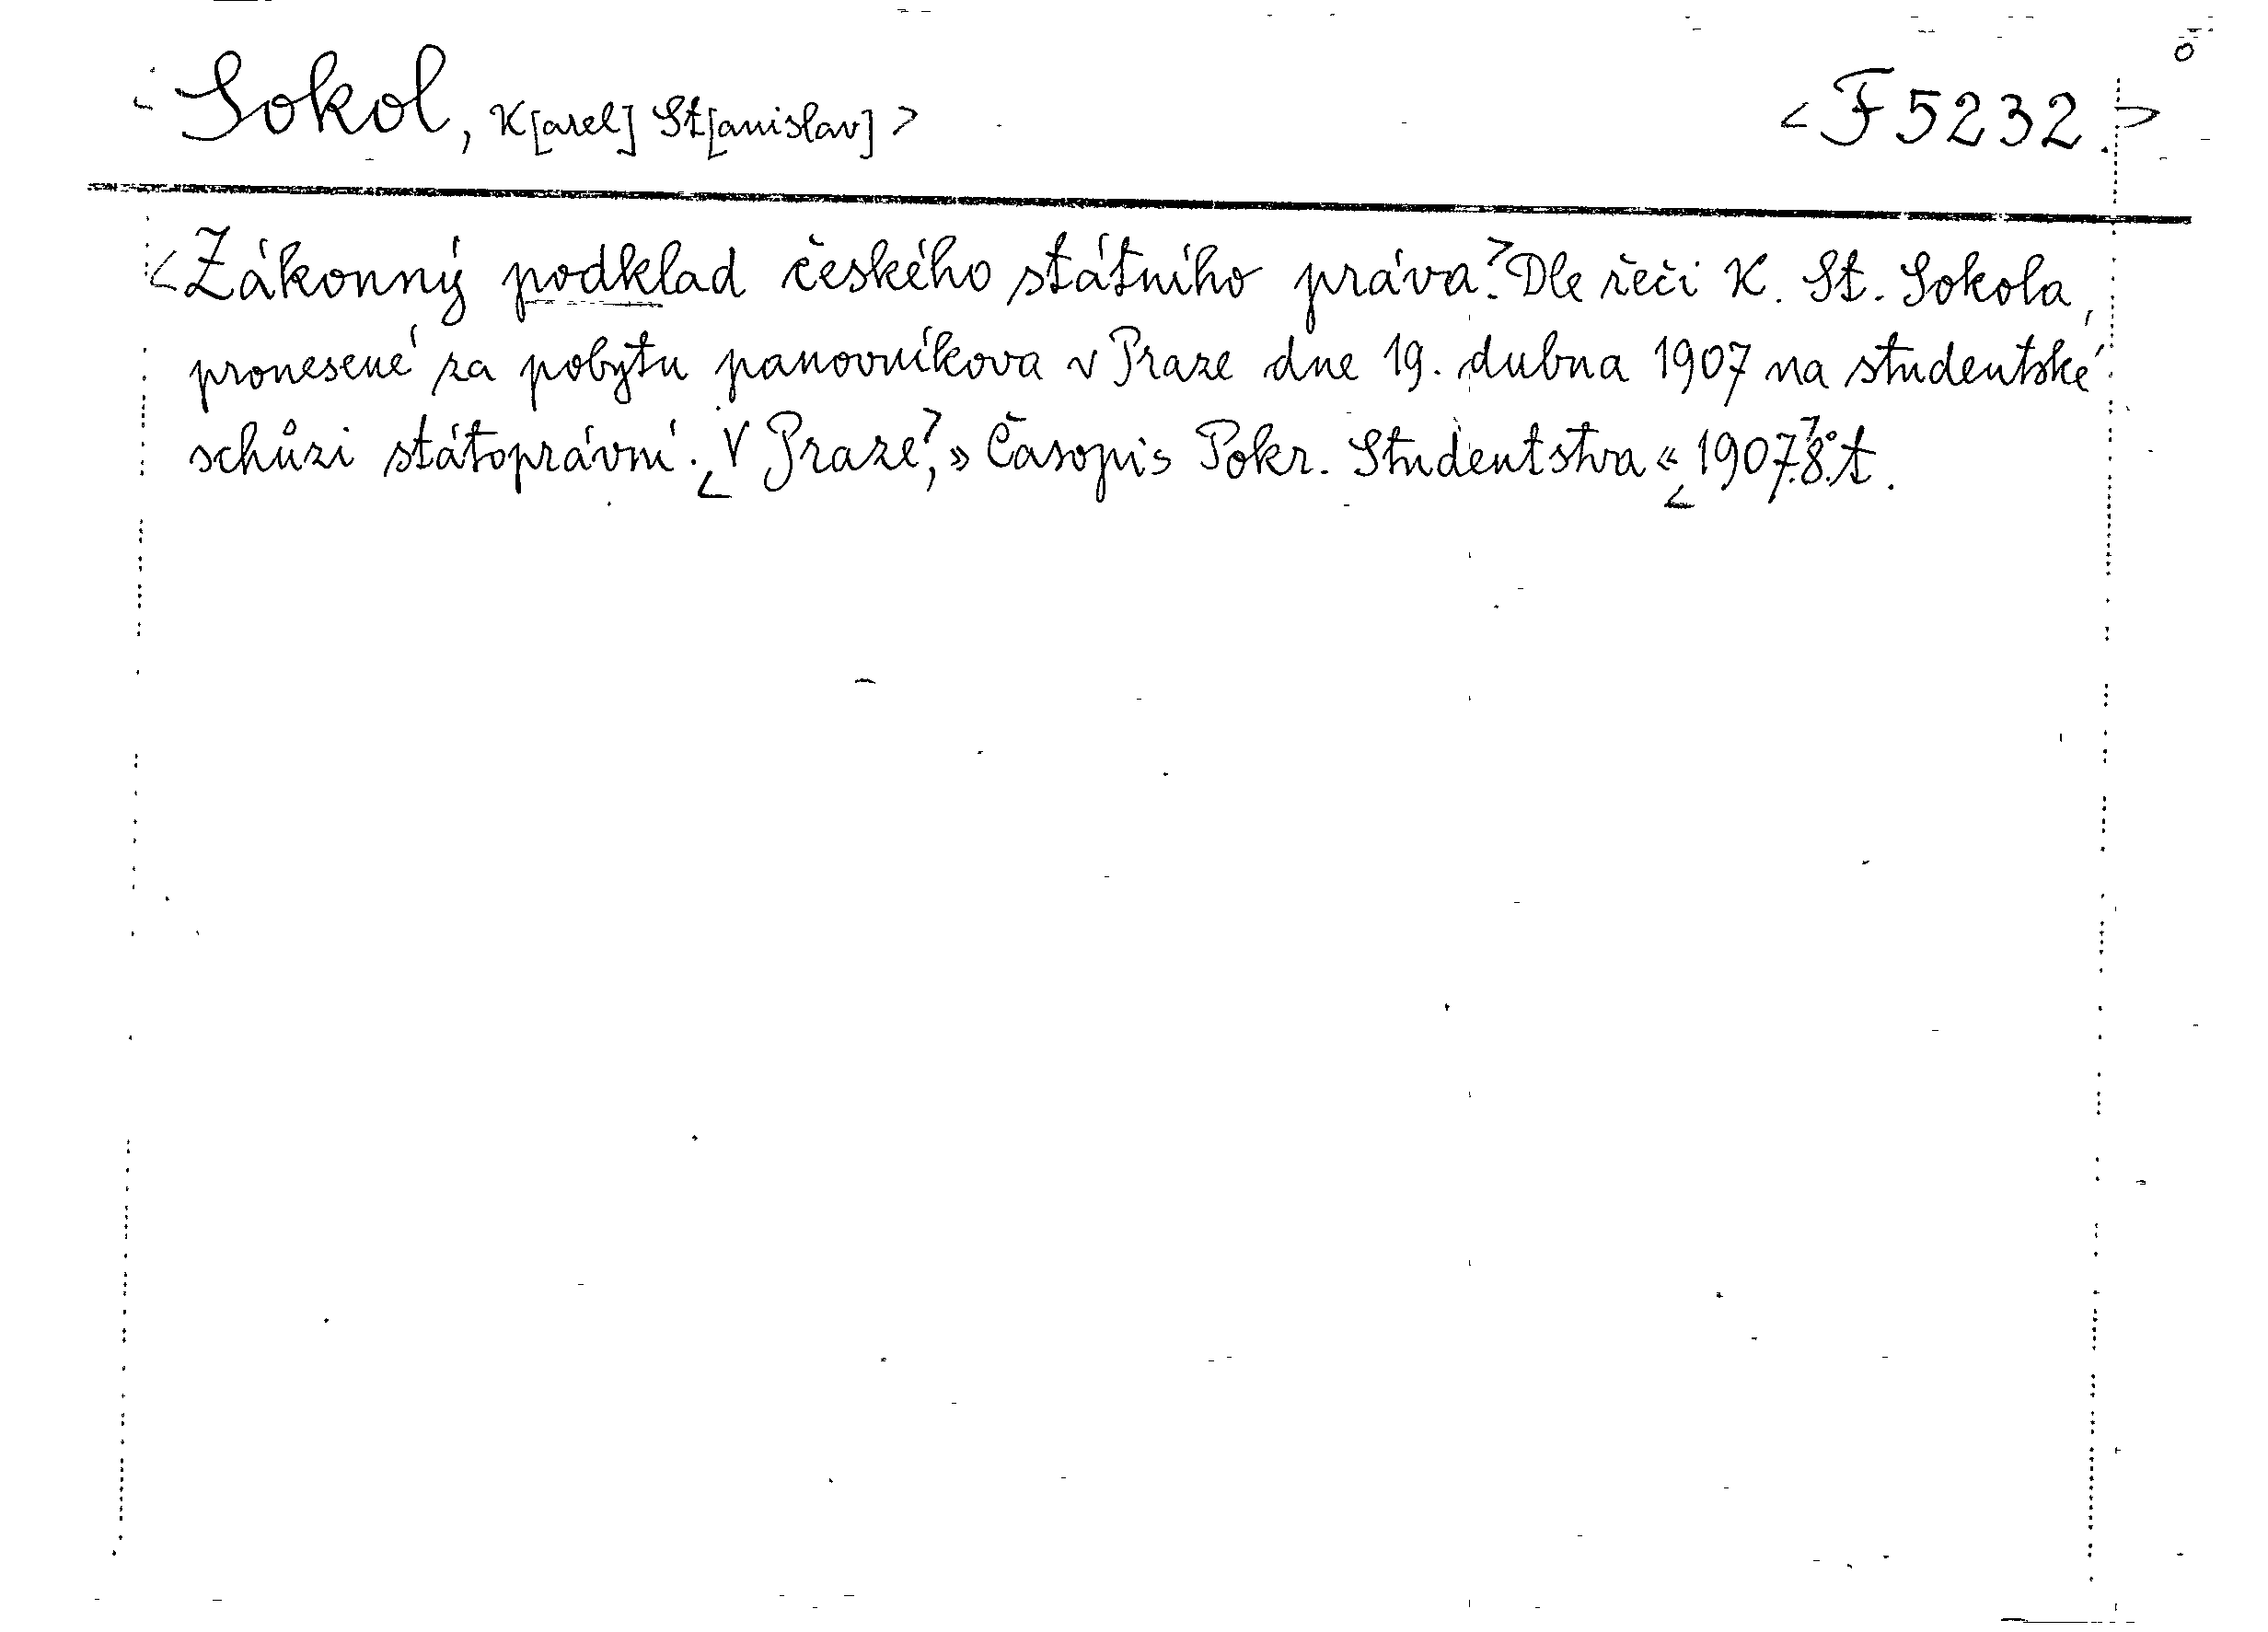 <Sokol, K[arel] St[anislav]> <F 5232.>
<Zákonný podklad českého státního práva.> Dle řeči K. St. Sokola,
pronesené za pobytu panovníkova v Praze dne 19. dubna 1907 na studentské
schůzi státoprávní. <V Praze>, »Časopis Pokr. Studentstva« <1907.> 8°. t.